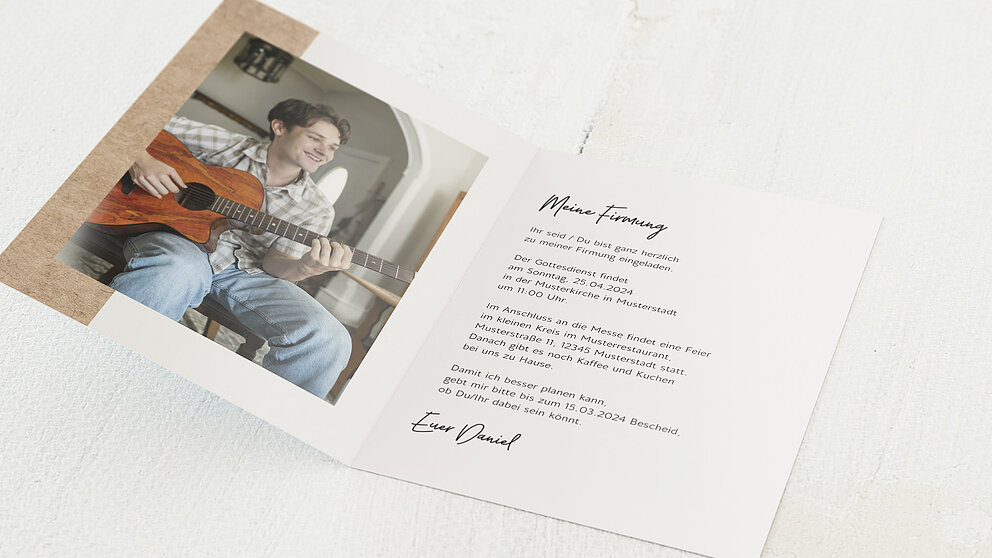 Meine Firmung
Ihr seid / Du bist ganz herzlich
zu meiner Firmung eingeladen.
Der Gottesdienst findet
am Sonntag, 25.04.2024
in der Musterkirche in Musterstadt
um 11:00 Uhr.
Im Anschluss an die Messe findet eine Feier
im kleinen Kreis im Musterrestaurant,
Musterstraße 11, 12345 Musterstadt statt.
Danach gibt es noch Kaffee und Kuchen
bei uns zu Hause.
Damit ich besser planen kann,
gebt mir bitte bis zum 15.03.2024 Bescheid,
ob Du/Ihr dabei sein könnt.
Euer Daniel